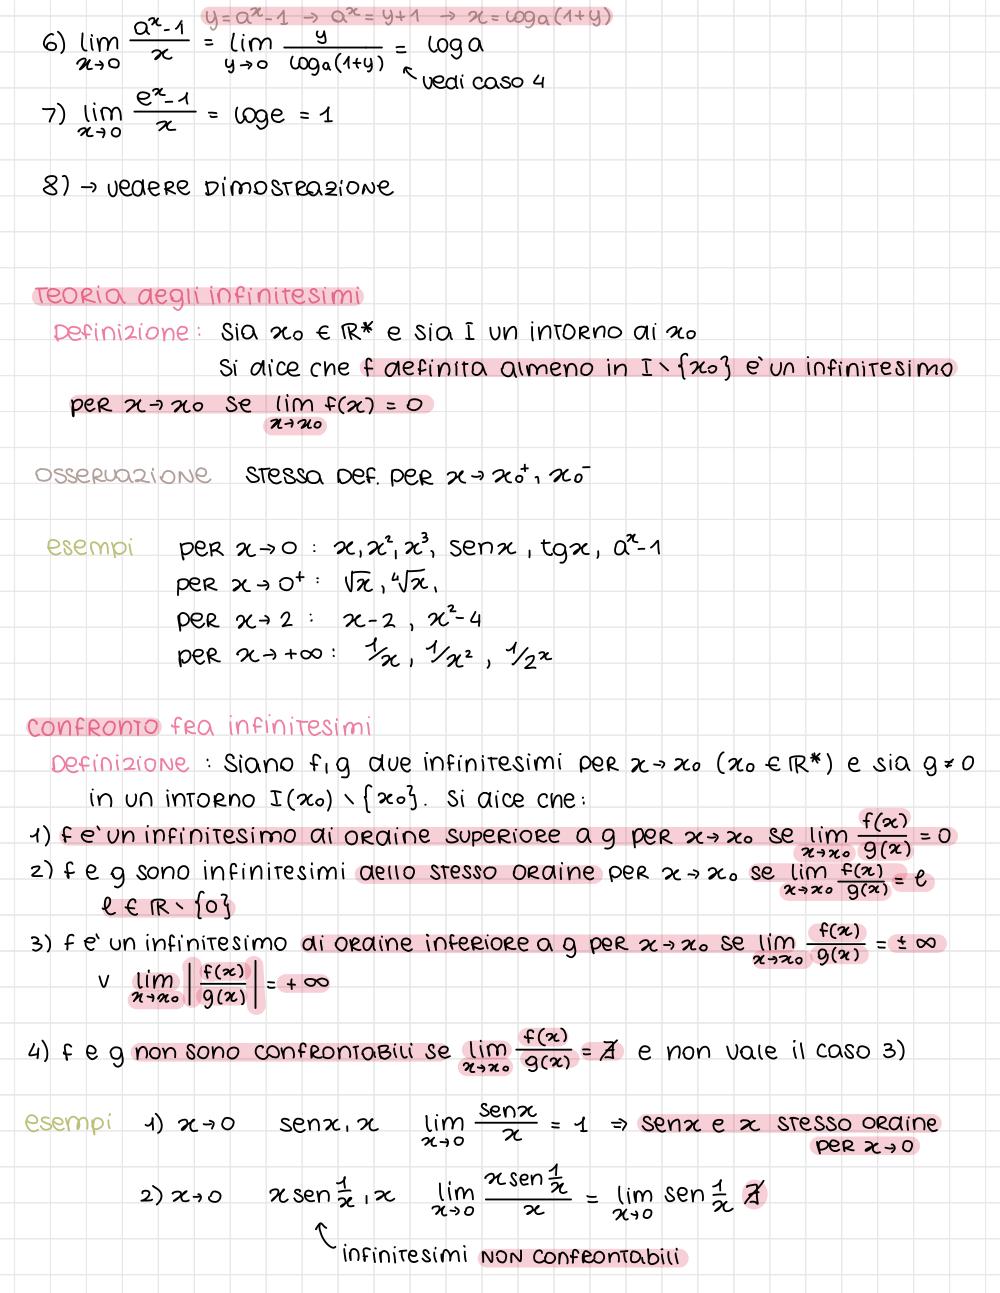 y=aˣ-1 → aˣ=y+1 → x=logₐ(1+y)
6) lim x→0 (aˣ-1)/x = lim y→0 y/logₐ(1+y) = log a
↖ vedi caso 4
7) lim x→0 (eˣ-1)/x = log e = 1
8) → vedere dimostrazione
Teoria degli infinitesimi
Definizione: Sia x₀ ∈ ℝ* e sia I un intorno di x₀
Si dice che f definita almeno in I∖{x₀} è un infinitesimo
per x→x₀ se lim x→x₀ f(x) = 0
osservazione stessa def. per x→x₀⁺, x₀⁻
esempi per x→0 : x, x², x³, sen x, tg x, aˣ-1
per x→0⁺ : √x, ⁴√x,
per x→2 : x-2, x²-4
per x→+∞ : 1/x, 1/x², 1/2ˣ
confronto fra infinitesimi
Definizione : Siano f, g due infinitesimi per x→x₀ (x₀ ∈ ℝ*) e sia g≠0
in un intorno I(x₀)∖{x₀}. Si dice che:
1) f è un infinitesimo di ordine superiore a g per x→x₀ se lim x→x₀ f(x)/g(x) = 0
2) f e g sono infinitesimi dello stesso ordine per x→x₀ se lim x→x₀ f(x)/g(x) = ℓ
ℓ ∈ ℝ∖{0}
3) f è un infinitesimo di ordine inferiore a g per x→x₀ se lim x→x₀ f(x)/g(x) = ± ∞
∨ lim x→x₀ |f(x)/g(x)| = +∞
4) f e g non sono confrontabili se lim x→x₀ f(x)/g(x) = ∄ e non vale il caso 3)
esempi 1) x→0 sen x, x lim x→0 sen x/x = 1 ⇒ sen x e x stesso ordine
per x→0
2) x→0 x sen 1/x, x lim x→0 (x sen 1/x)/x = lim x→0 sen 1/x ∄
infinitesimi NON confrontabili